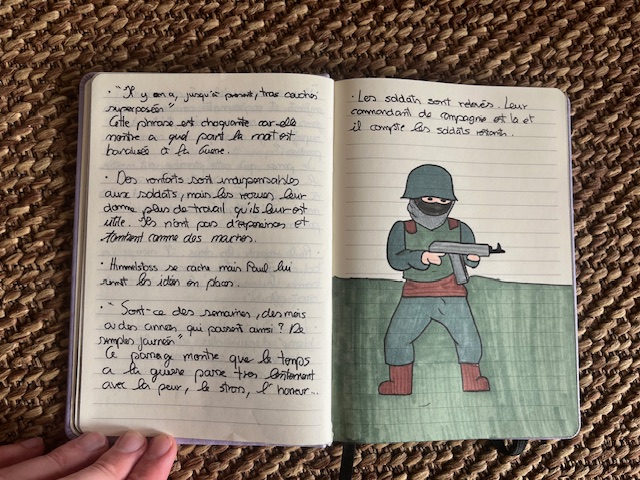 • "Il y en a, jusqu'à présent, trois couches
superposées"
Cette phrase est choquante car elle
montre a quel point la mort est
banalisée à la Guerre.
• Des renforts sont indispensables
aux soldats, mais les recrues leur
donne plus de travail qu'ils leur est
utile. Ils n'ont pas d'experiences et
tombent comme des mouches.
• Himmelstoss se cache mais Paul lui
remet les idées en places.
• "Sont-ce des semaines, des mois
ou des années qui passent ainsi? De
simples journées"
Ce passage montre que le temps
a la guerre passe tres lentement
avec la peur, le stress, l'horreur...
• Les soldats sont relevés. Leur
commandant de compagnie est la et
il compte les soldats restants.